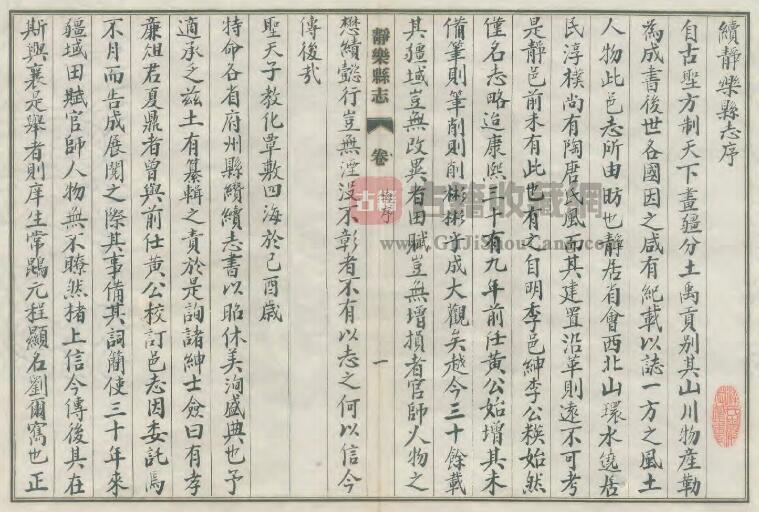 續靜樂縣志序
自古聖方制天下畫疆分土禹貢別其山川物產勒
為成書後世各國因之咸有紀載以誌一方之風土
人物此邑志所由昉也靜居省會西北山環水繞居
民淳樸尚有陶唐氏風而其建置沿革則遠不可考
是靜邑前未有此也有之自明季邑紳李公模始然
僅名志略迨康熙三十有九年前任黃公始增其未
備筆則筆削則削彬彬乎成大觀矣越今三十餘載
其疆域豈無改異者田賦豈無增損者官師人物之
靜樂縣志
卷
續序
一
懋績懿行豈無湮沒不彰者不有以志之何以信今
傳後哉
聖天子教化覃敷四海於己酉歲
特命各省府州縣纘續志書以昭休美洵盛典也予
適承之茲土有纂輯之責於是詢諸紳士僉曰有孝
廉俎君夏鼎者曾與前任黃公校訂邑志因委託焉
不月而告成展閱之際其事備其詞簡使三十年來
疆域田賦官師人物無不瞭然楮上信今傳後其在
斯與襄是舉者則庠生常鵾元程顯名劉爾寓也正
古籍
古籍收藏網
www.GuJiShouCang.com